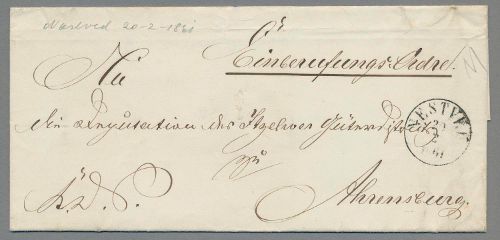 Næstved 20-2-1861
Einberufungs-Ordre.
An
die Deputation des Itzehoer Güterdistricts
zu
K. D. S.
Ahrensburg.
NESTVED
20
2
61